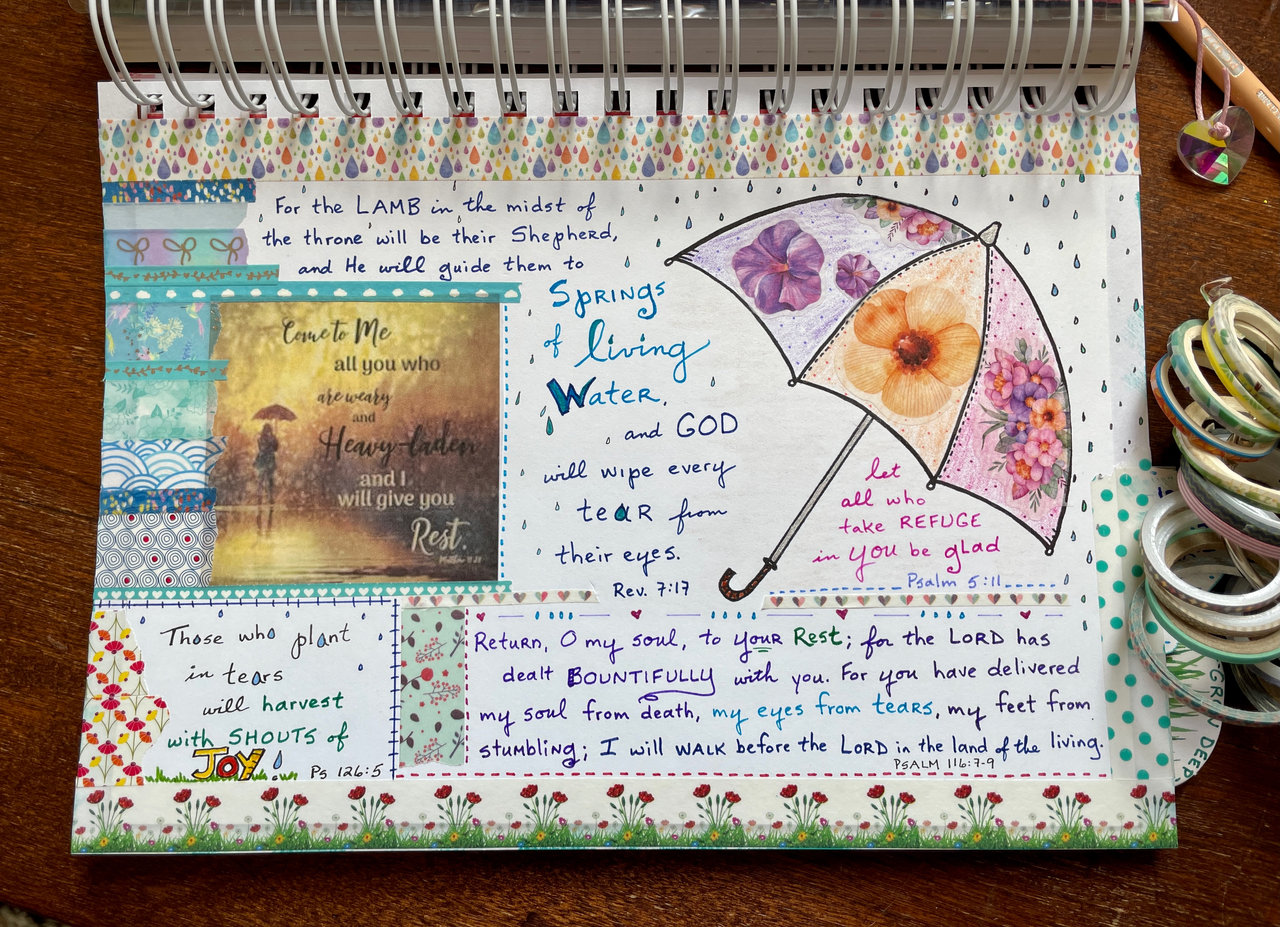 For the LAMB in the midst of
the throne will be their Shepherd,
and He will guide them to
SPRINGS
of living
WATER.
and GOD
will wipe every
teaR from
their eyes.
Rev. 7:17
Come to Me
all you who
are weary
and
Heavy-laden
and I
will give you
Rest.
Matthew 11:28
let
all who
take REFUGE
in you be glad
Psalm 5:11
Those who plant
in tears
will harvest
with SHOUTS of
JOY
Ps 126:5
Return, O my soul, to your Rest; for the LORD has
dealt BOUNTIFULLY with you. For you have delivered
my soul from death, my eyes from tears, my feet from
stumbling; I will WALK before the LORD in the land of the living.
PSALM 116:7-9